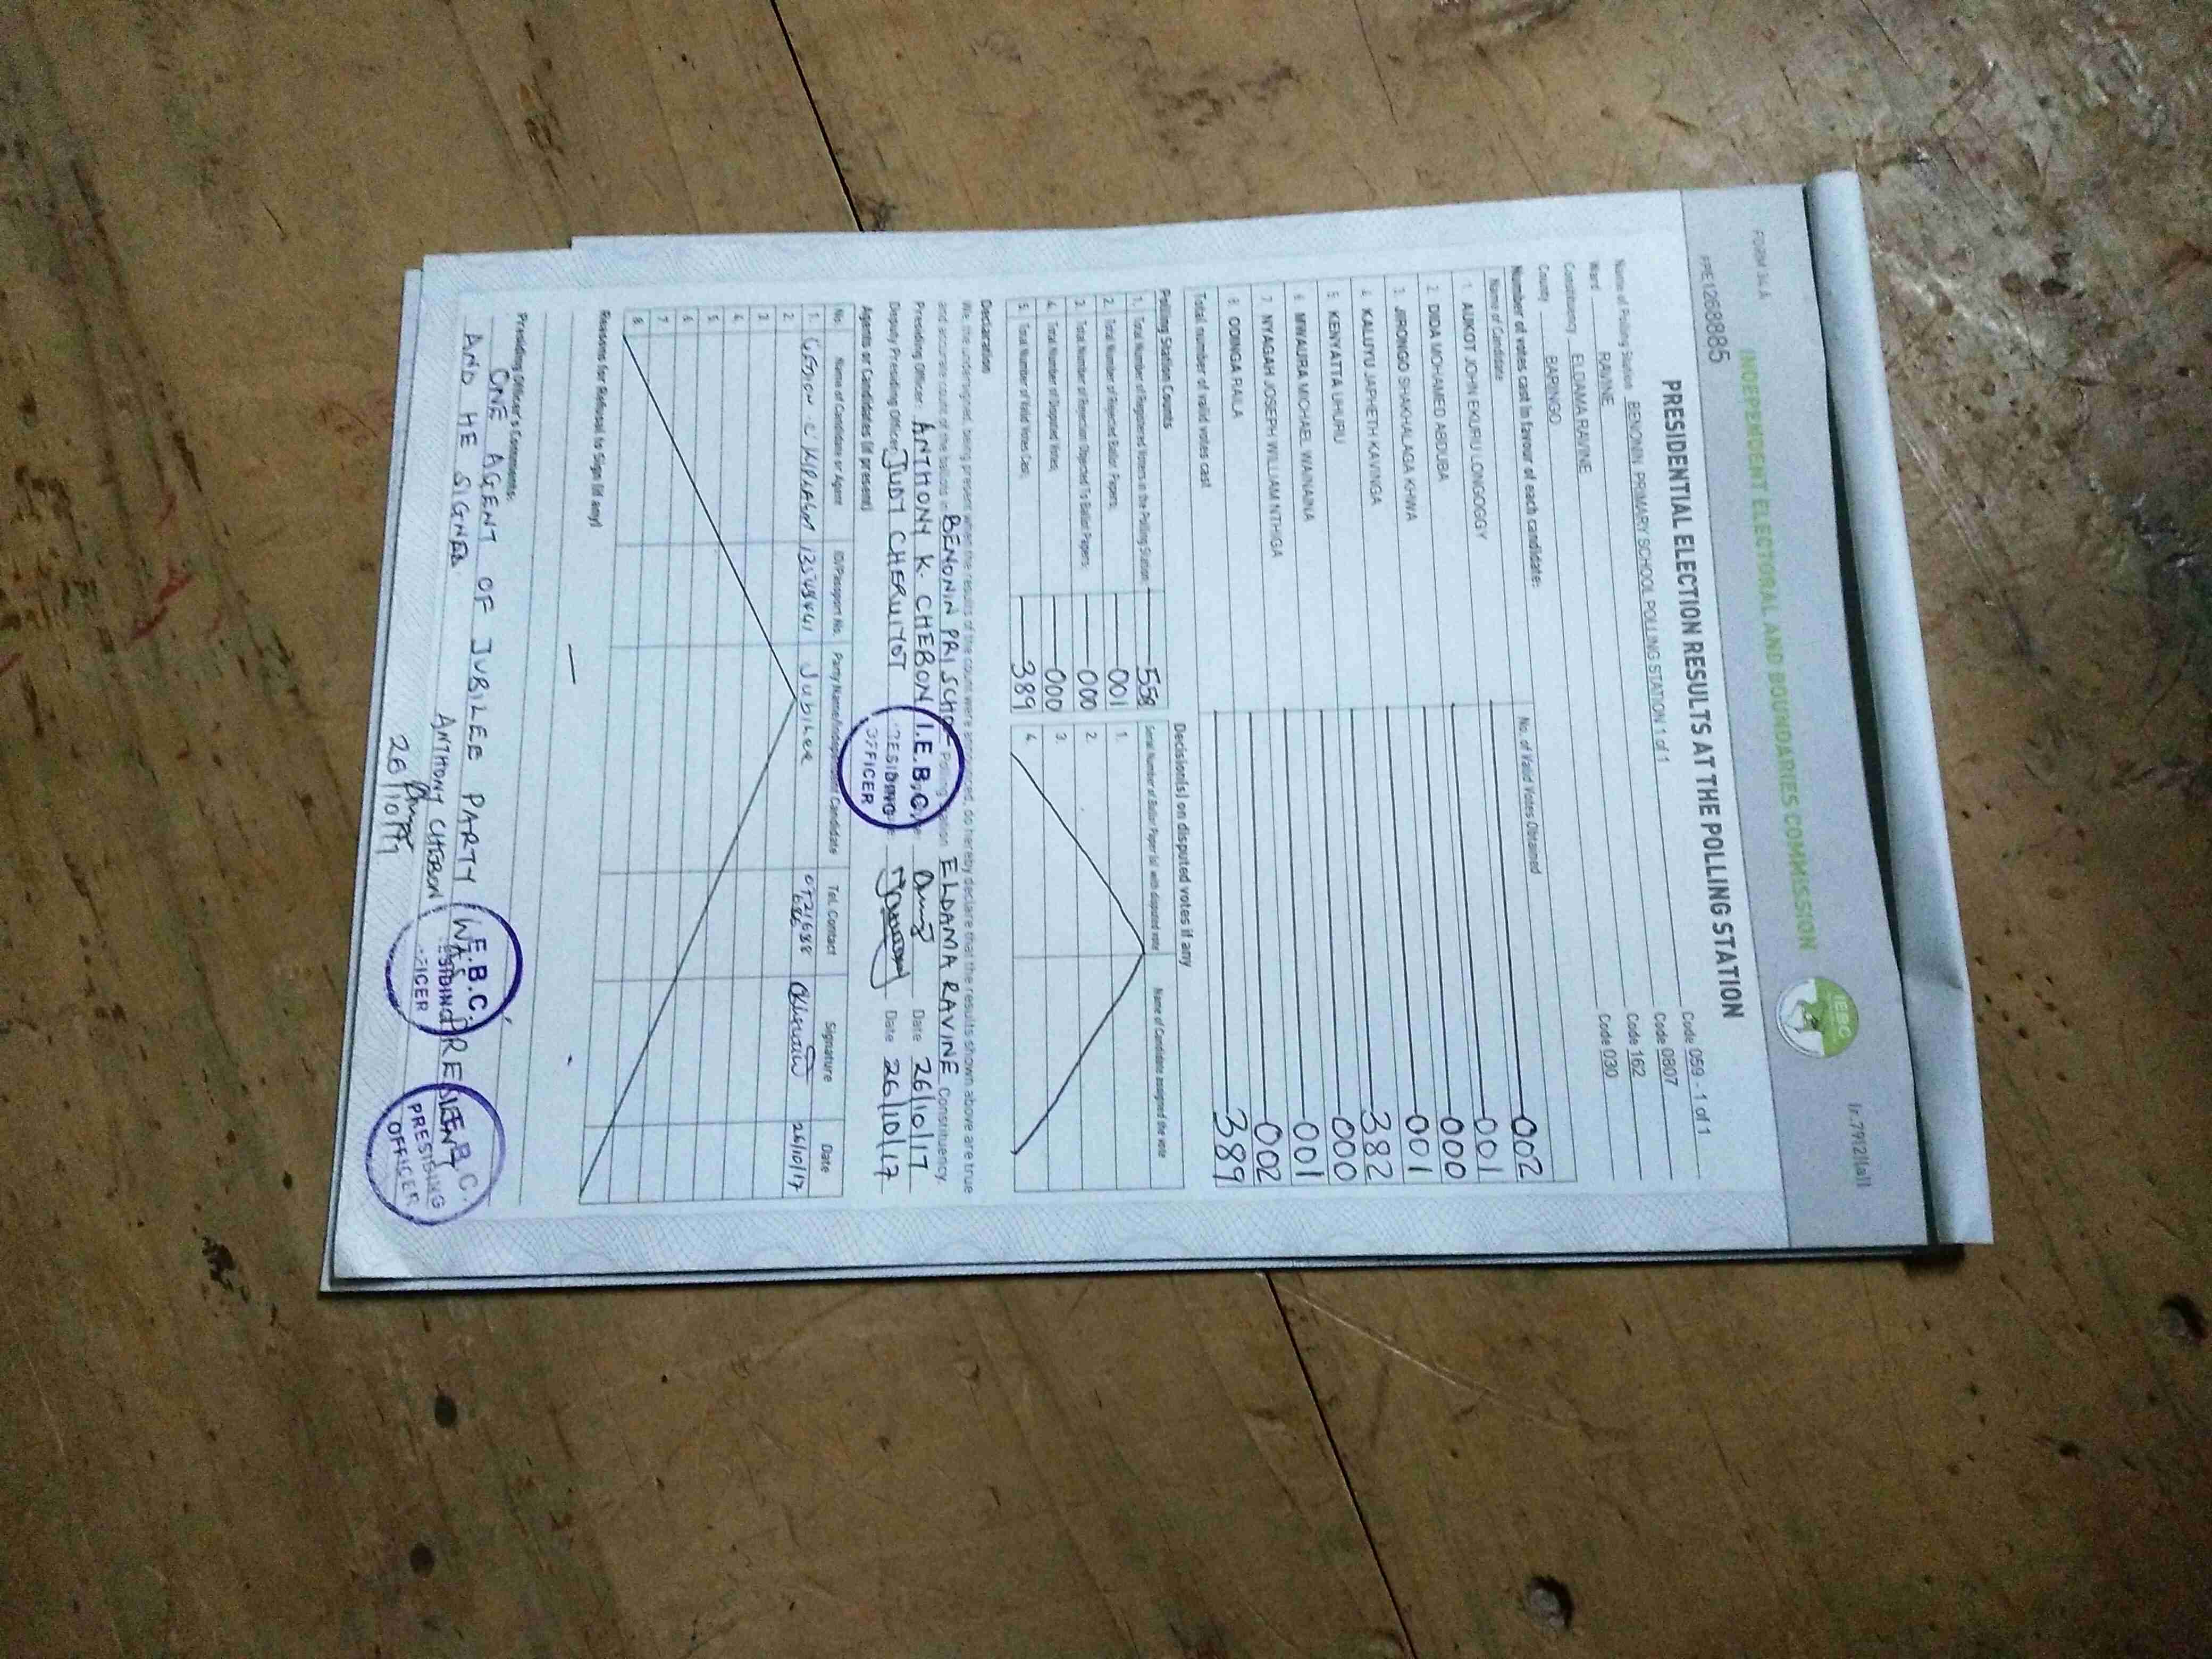 FORM 34 A
Ir.79(2)(a)1
INDEPENDENT ELECTORAL AND BOUNDARIES COMMISSION
IEBC
FPE1268885
PRESIDENTIAL ELECTION RESULTS AT THE POLLING STATION
Name of Polling Station BENONIN PRIMARY SCHOOL POLLING STATION 1 of 1 Code 059 - 1 of 1
Ward RAVINE Code 0807
Constituency ELDAMA RAVINE Code 162
County BARINGO Code 030
Number of votes cast in favour of each candidate:
Name of Candidate No. of Valid Votes Obtained
1. AUKOT JOHN EKURU LONGOGGY 002
2. DIDA MOHAMED ABDUBA 001
3. JIRONGO SHAKHALAGA KHWA 000
4. KALUYU JAPHETH KAVINGA 001
5. KENYATTA UHURU 382
6. MWAURA MICHAEL WAINAINA 000
7. NYAGAH JOSEPH WILLIAM NTHIGA 001
8. ODINGA RAILA 002
Total number of valid votes cast 389
Polling Station Counts
1. Total Number of Registered Voters in the Polling Station: 558
2. Total Number of Rejected Ballot Papers: 001
3. Total Number of Rejection Objected To Ballot Papers: 000
4. Total Number of Disputed Votes: 000
5. Total Number of Valid Votes Cast: 389
Decision(s) on disputed votes if any
Serial Number of Ballot Paper (s) with disputed vote Name of Candidate assigned the vote
1.
2.
3.
4.
Declaration
We, the undersigned, being present when the results of the count were announced, do hereby declare that the results shown above are true
and accurate count of the ballots in BENONIN PRI SCHOOL Polling Station ELDAMA RAVINE Constituency
Presiding Officer: ANTHONY K. CHEBON Date 26/10/17
Deputy Presiding Officer: JUDY CHERUIYOT Date 26/10/17
I.E.B.C.
PRESIDING
OFFICER
Agents or Candidates (if present)
No. Name of Candidate or Agent ID/Passport No. Party Name/Independent Candidate Tel. Contact Signature Date
1. Jubilee 26/10/17
2.
3.
4.
5.
6.
7.
8.
Reasons for Refusal to Sign (if any)
Presiding Officer's Comments:
ONE AGENT OF JUBILEE PARTY WAS PRESENT
AND HE SIGNED.
ANTHONY CHEBON
26/10/17
I.E.B.C.
PRESIDING
OFFICER
I.E.B.C.
PRESIDING
OFFICER